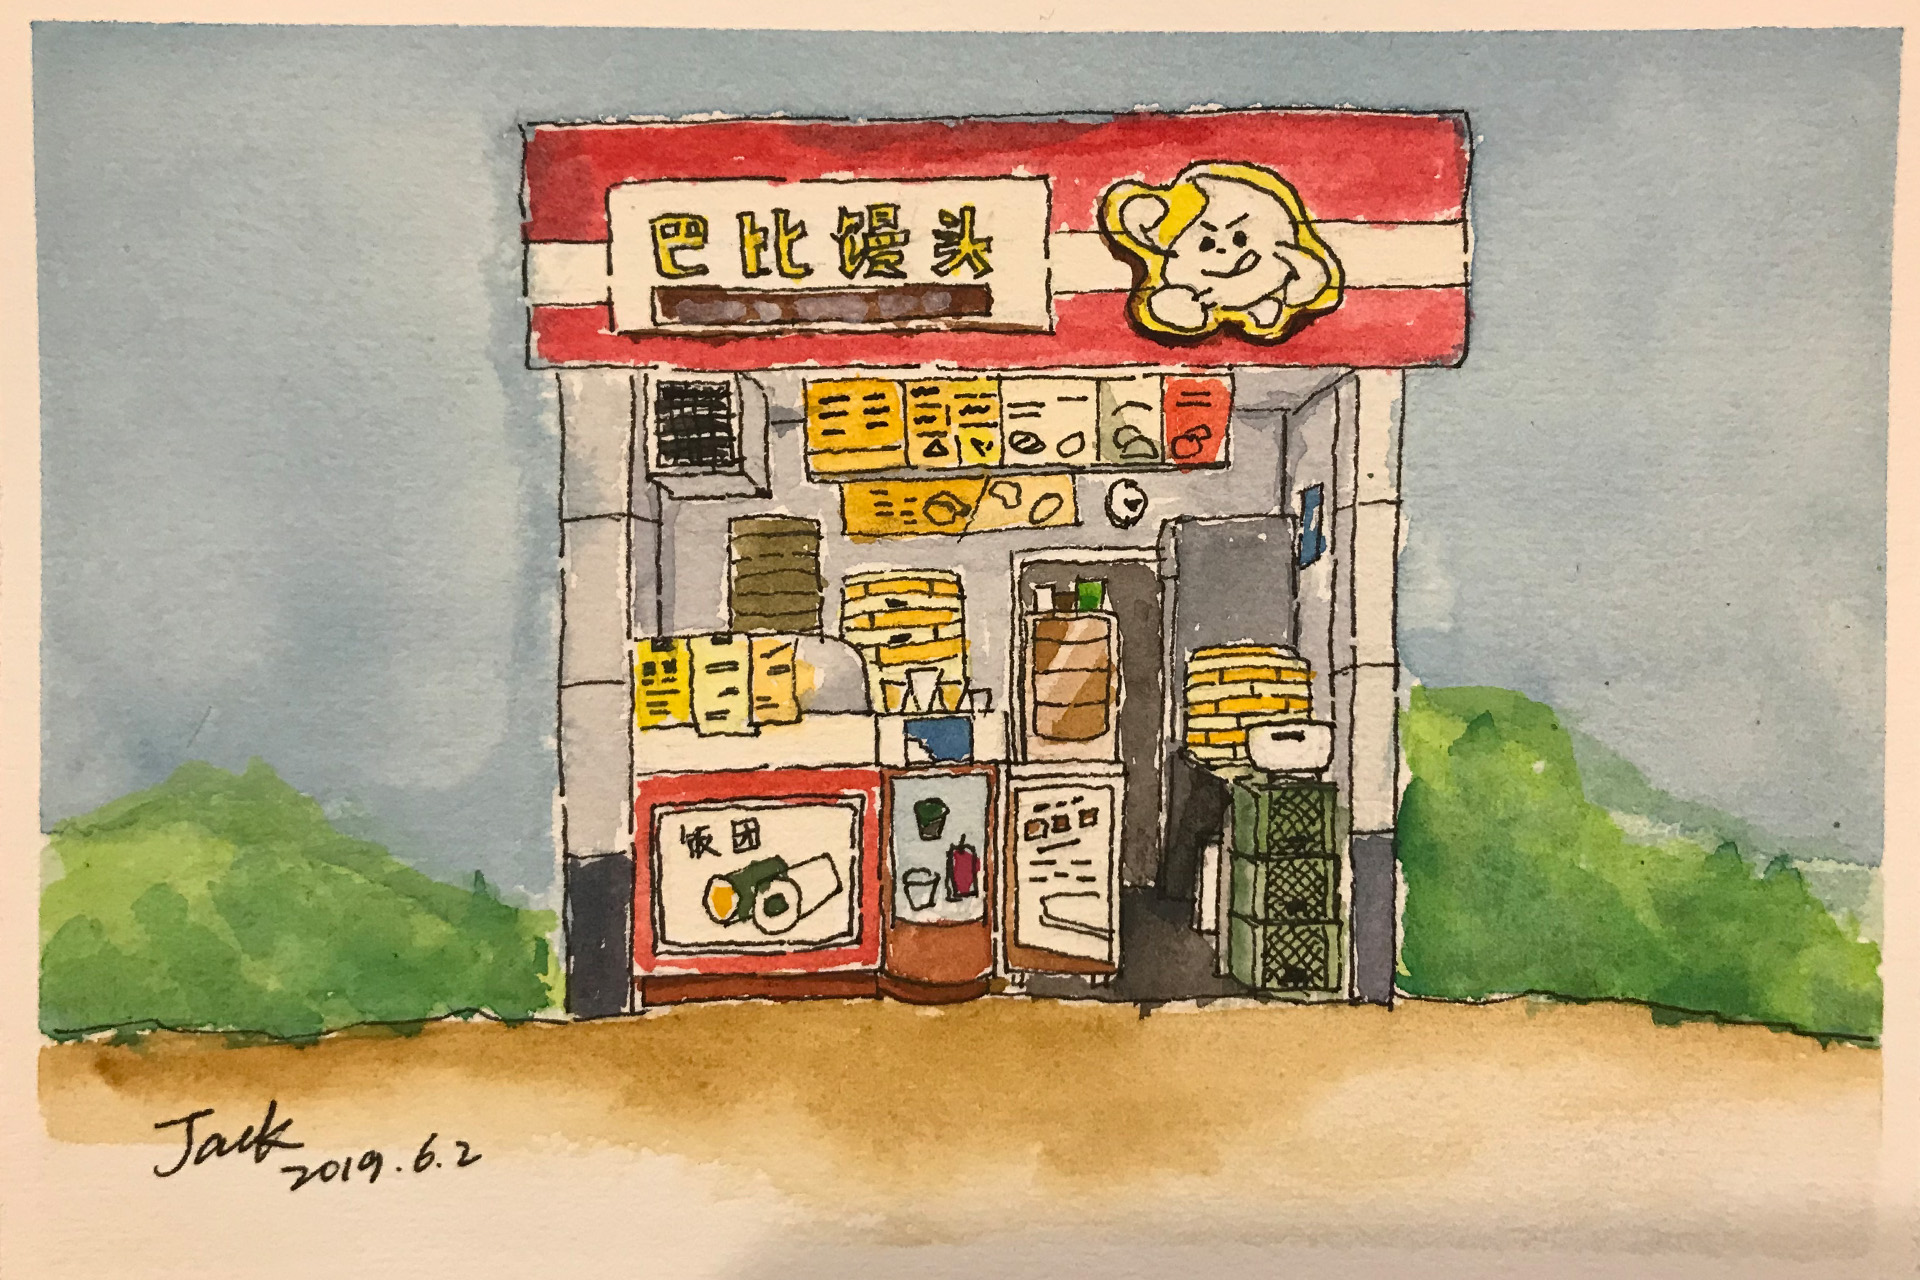 巴比馒头
饭团
Jack
2019.6.2